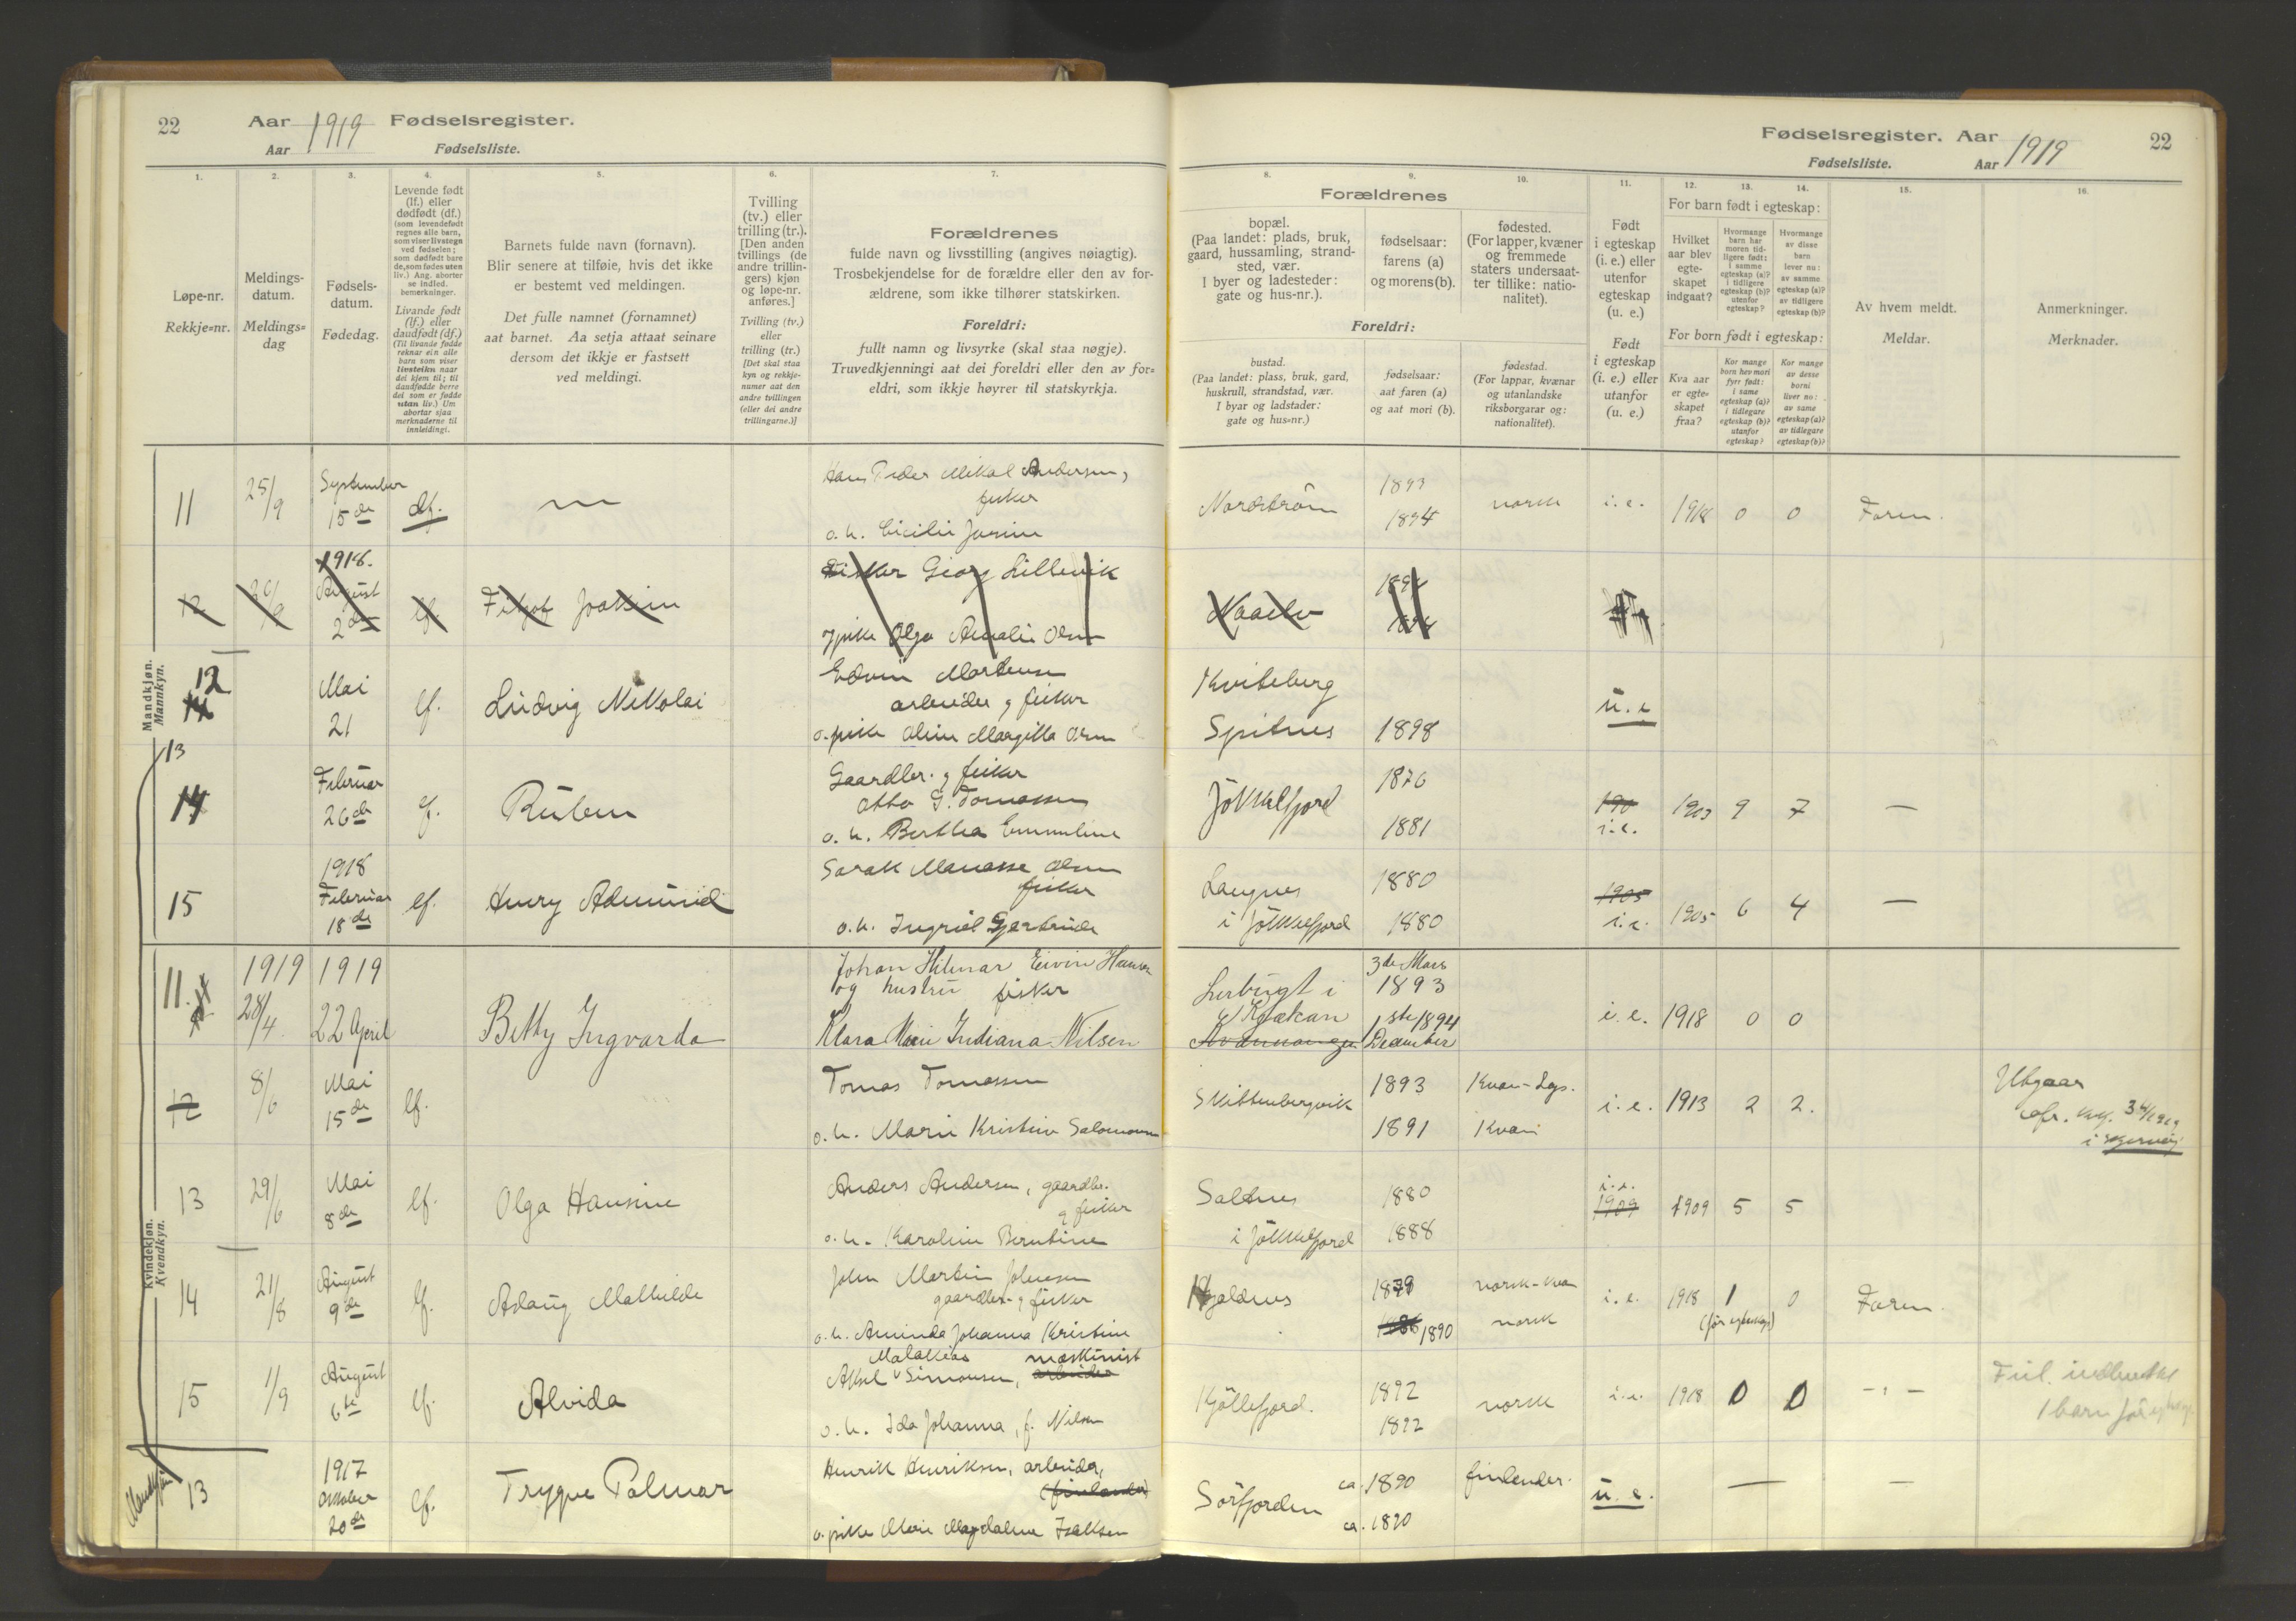 22
Aar 1919 Fødselsregister.
Aar Fødselsliste.
Fødselsregister. Aar 1919
Fødselsliste. Aar
22
1.
Løpe-nr.
Rekkje=nr.
2.
Meldings-
datum.
Meldings=
dag
3.
Fødsels-
datum.
Fødedag.
4.
Levende født
(lf.) eller
dødfødt (df.)
(som levendefødt
regnes alle barn,
som viser livstegn
ved fødselen;
som dødfødt bare
de, som fødes uten
liv.) Ang. aborter
se indled.
bemerkninger.
Livande født
(lf.) eller
daudfødt (df.)
(Til livande fødde
reknar ein alle
barn som viser
livsteikn naar
dei kjem til; til
daudfødde berre
dei som er fødde
utan liv.) Um
abortar sjaa
merknaderne til
innleidingi.
5.
Barnets fulde navn (fornavn).
Blir senere at tilføie, hvis det ikke
er bestemt ved meldingen.
Det fulle namnet (fornamnet)
aat barnet. Aa setja attaat seinare
dersom det ikkje er fastsett
ved meldingi.
6.
Tvilling
(tv.) eller
trilling (tr.).
[Den anden
tvillings (de
andre trillin-
gers) kjøn
og løpe-nr.
anføres.]
Tvilling (tv.)
eller
trilling (tr.)
[Det skal staa
kyn og rekkje-
numer aat den
andre tvillingen
(eller dei andre
trillingarne.)]
7.
Forældrenes
fulde navn og livsstilling (angives nøiagtig).
Trosbekjendelse for de forældre eller den av for-
ældrene, som ikke tilhører statskirken.
Foreldri:
fullt namn og livsyrke (skal staa nøgje).
Truvedkjenningi aat dei foreldri eller den av for=
eldri, som ikkje høyrer til statskyrkja.
8.
Forældrenes
bopæl.
(Paa landet: plads, bruk,
gaard, hussamling, strand-
sted, vær.
I byer og ladesteder:
gate og hus-nr.).
Foreldri:
bustad.
(Paa landet: plass, bruk, gard,
huskrull, strandstad, vær.
I byar og ladstader:
gate og hus=nr.)
9.
fødselsaar:
farens (a)
og morens (b).
fødselsaar:
aat faren (a)
og aat mori (b).
10.
fødested.
(For lapper, kvæner
og fremmede
staters undersaat-
ter tillike: natio-
nalitet).
fødestad.
(For lappar, kvænar
og utanlandske
riksborgarar og:
nationalitet).
11.
Født
i egteskap
(i. e.) eller
utenfor
egteskap
(u. e.)
Født
i egteskap
(i. e.) eller
utanfor
(u. e.)
12.
For barn født i egteskap:
Hvilket
aar blev
egte-
skapet
indgaat?
For born født i egteskap:
Kva aar
er egte-
skapet
fraa?
13.
Hvormange
barn har
moren tid-
ligere født:
i samme
egteskap (a)?
i tidligere
egteskap (b)?
utenfor
egteskap?
Kor mange
born hev mori
fyrr født:
i same
egteskap (a)?
i tidlegare
egteskap (b)?
utanfor
egteskap?
14.
Hvormange
av disse
barn
lever nu:
av samme
egteskap (a)?
av tidligere
egteskap (b)?
Kor mange
av desse
borni
liver no:
av same
egteskap (a)?
av tidlegare
egteskap (b)?
15.
Av hvem meldt.
Meldar.
16.
Anmerkninger.
Merknader.
Mandkjøn.
Mannkyn.
11 25/9 September 15de df. — Hans Peder Mikal Andersen,
fisker
o. h. Cicilie Josine
Nordström 1893 1894 norsk i. e. 1918 0 0 Faren.
12 1918. August 2de lf. Joakim Fisker Georg Lillevik
pike Olga Amalie Olsen
12 Mai 21 lf. Ludvig Nikolai Edvin Mortensen
arbeider g fisker
o. pike Margitta Olsen
Kviteberg
Spitnes 1898 u. e
13
14 Februar 26de lf. Ruben Gaardbr. g fisker
Otto G. Tomassen
o. h. Berthea Emmeline
Jökkelfjord 1876 1881 i. e. 1903 9 7 —
15 1918 Februar 18de lf. Henry Admund Sarak Manasse Olsen
fisker
o. h. Ingriel Gjertrude
Langnes
i Jökkelfjord 1880 1880 1905 i. e. 1905 6 4 —
Kvindekjøn.
Kvendkyn.
11. 1919 28/4. 1919 22 April Betty Ingvarda Johan Hilmar Eivin Hansen
og hustru fisker
Klara Marie Indiana Nilsen
i
Kvænangen 3de Mars 1893 1ste 1894 December i. e. 1918 0 0
12 8/6 Mai 15de lf. Tomas Tomassen
o. h. Marie Kristine Salomonsen
Skittenbergvik 1893 1891 Kvæn i. e. 1913 2 2. Utgaar
i
13 29/6 Mai 8de lf. Olga Hansine Anders Andersen, gaardbr.
g fisker
o. h. Karoline Berntine
Saltnes
i Jökkelfjord 1880 1888 i. e. 1909 1909 5 5
14 21/8 August 9de lf. Aslaug Mathilde John Martin Johnsen
gaardbr. g fisker
o. h. Aminda Johanna Kristine
1879 1890 norsk-kvæn norsk i. e. 1918 1 0 Faren.
15 1/9 August 6te lf. Alvida Aksel Malakias Simonsen, maskinist arbeider
o. h. Ida Johanna, f. Nilsen
Kjöllefjord. 1892 1892 norsk i. e. 1918 0 0 -"-
1 barn før
Mandkjøn
13 1917 Oktober 20de lf. Trygve Palmar Henrik Henriksen, arbeider,
(finlender)
o. pike Marie Magdalena Isaksen
Sörfjorden ca. 1890 ca. 1890 finlender. u. e. — —